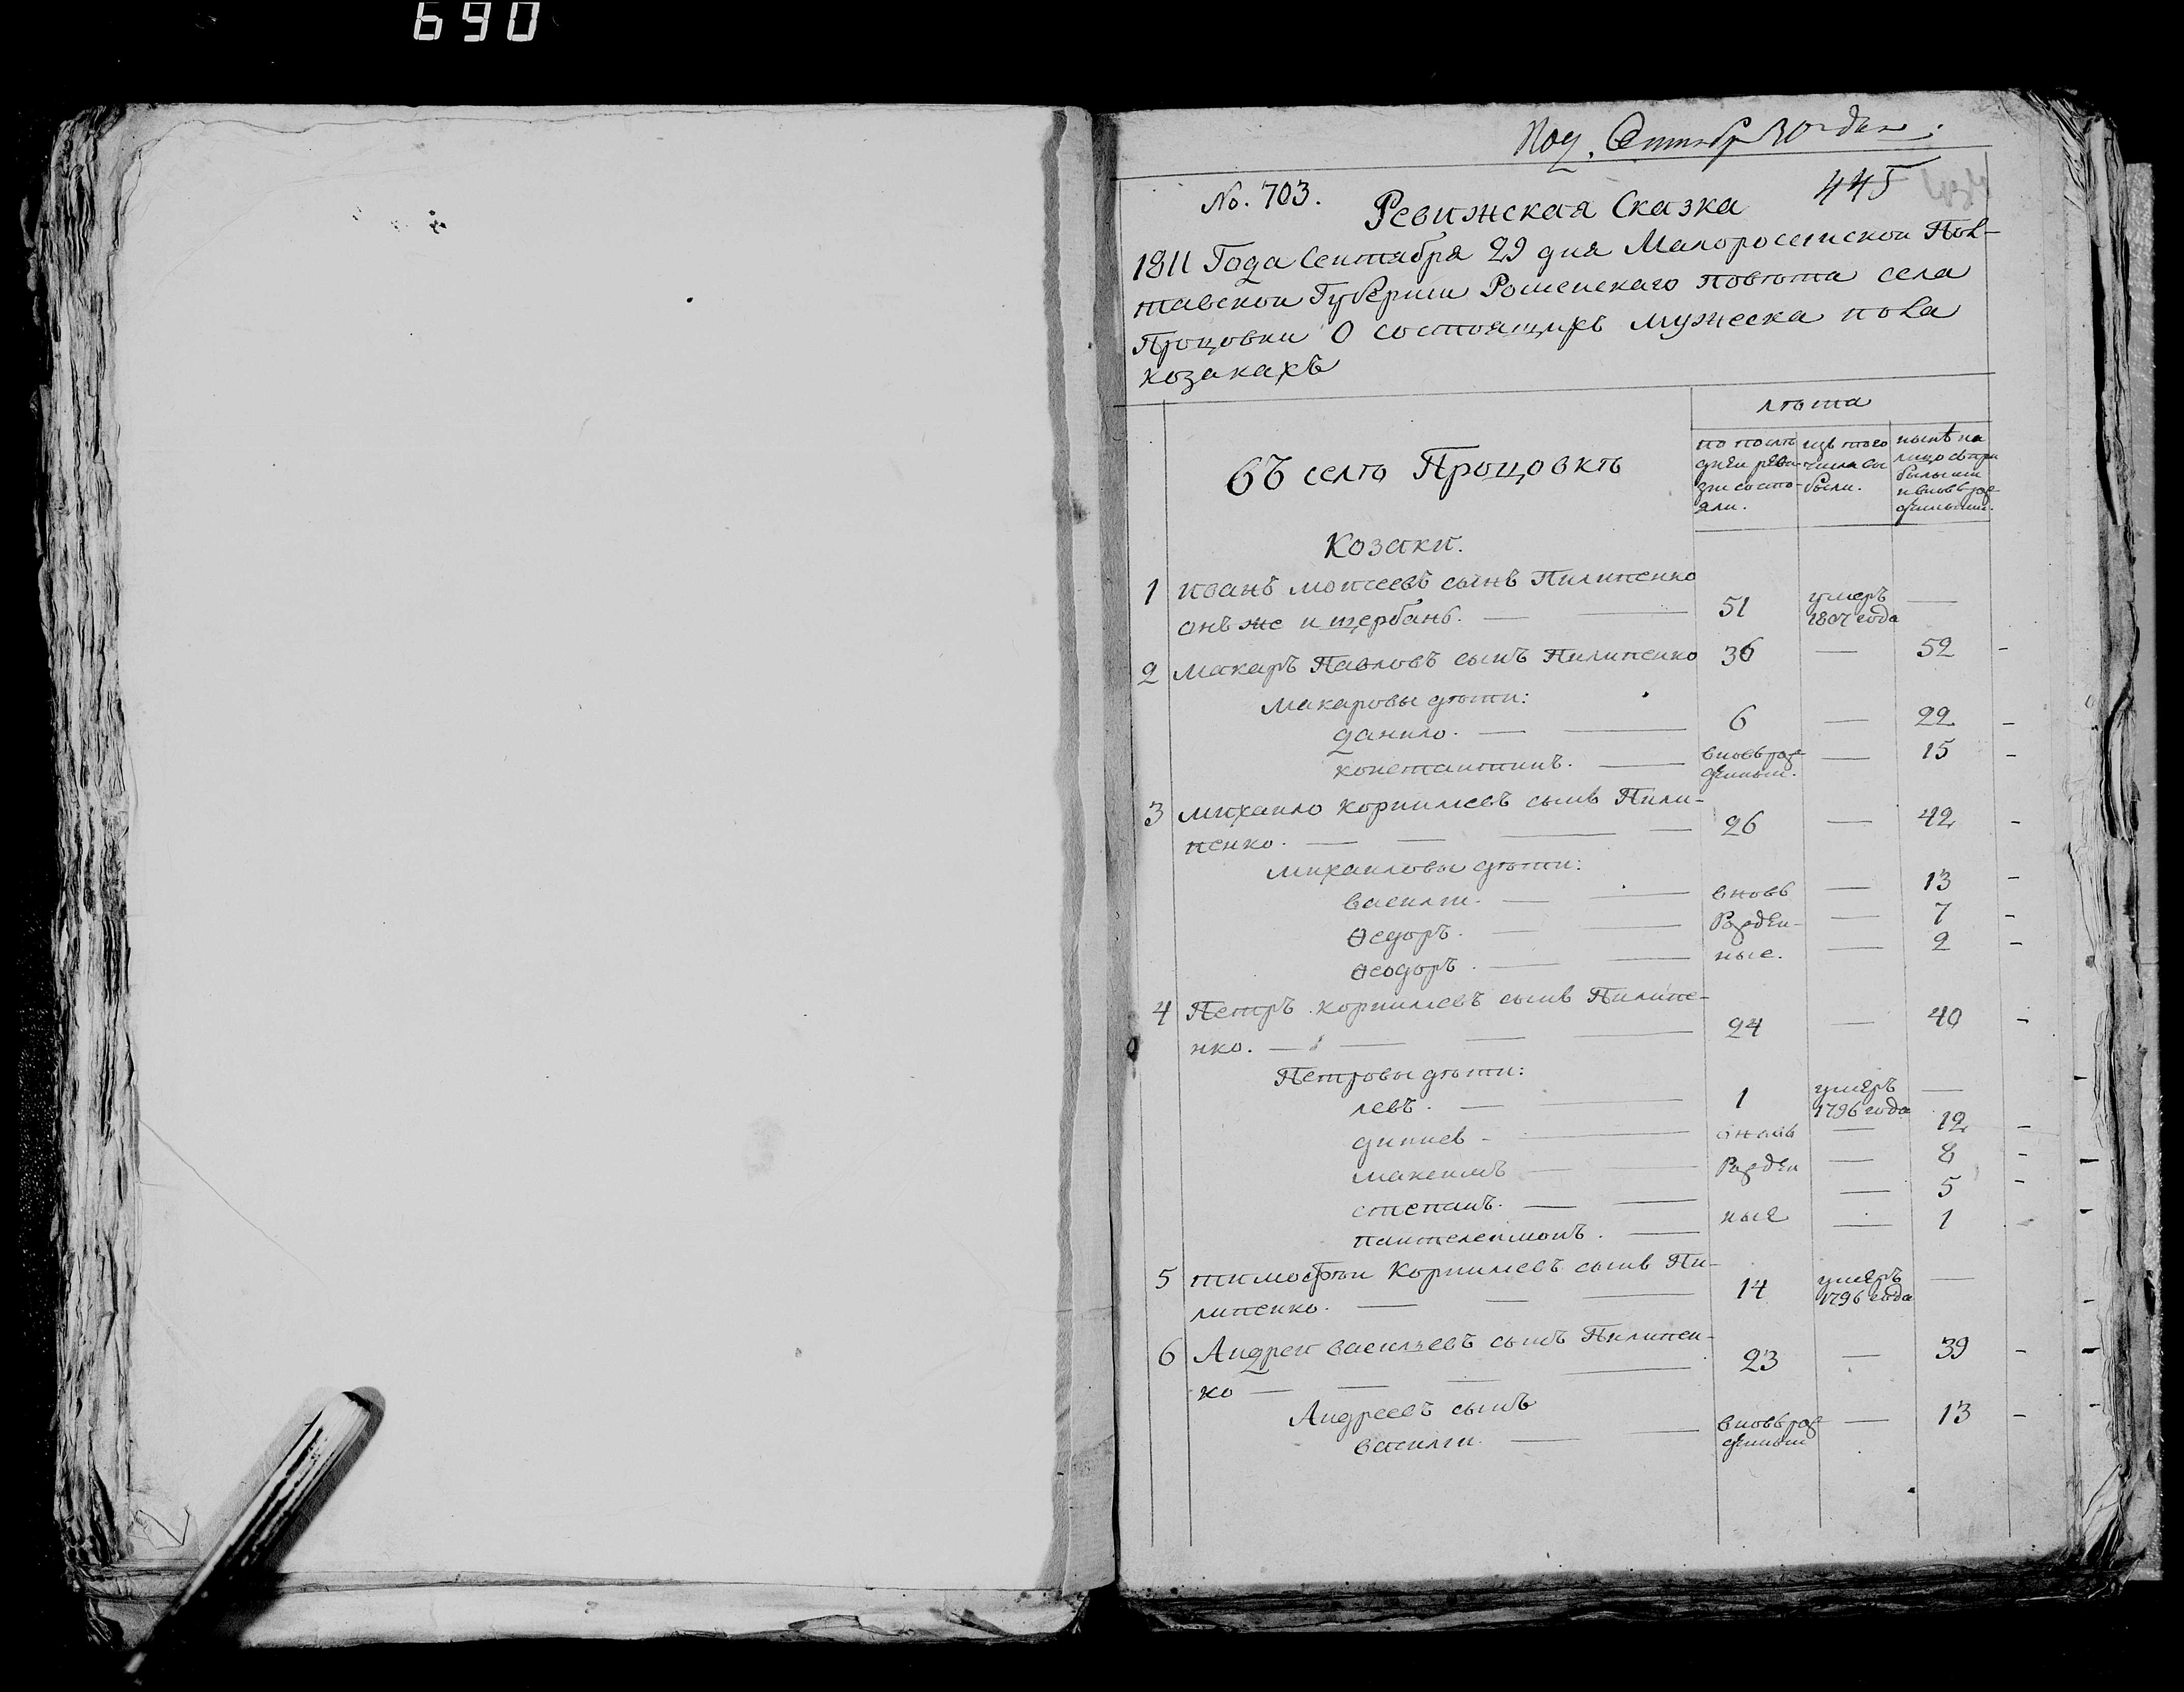 690
Пол. Сентябр 30 дня
No. 703.
445
Ревижская Сказка
1811 Года Сентября 29 дня Малоросеиской Пол-
тавской Губернии Роменскаго повѣта села
Процовки О состоящихъ мужеска пола
козакахъ
лѣта
въ селѣ Процовкѣ
по послѣ
дней реви-
зии состо-
яли.
изъ того
числа вы
были.
нынѣ на
лицо съ при
былыми
и вновь рож
денными.
Козаки.
1 иванъ моисеевъ сынъ Пилипенко
онъ же и щербань. — — 51 умеръ 1807 года —
2 макаръ Павловъ сынъ Пилипенко 36 — 52 -
макаровы дѣти:
данило. — — 6 — 22 -
константинъ. — вновь рож денный. — 15 -
3 михаило корнилиевъ сынъ Пили-
пенко. — — — — 26 — 42 -
михаиловы дѣти:
василии. — — вновь — 13 -
ѳедоръ. — — Рожден- — 7 -
ѳеодоръ. — — ные. — 2 -
4 Петръ корнилиевъ сынъ Пилипе-
нко. — — — — 24 — 40 -
Петровы дѣти:
левъ. — — 1 умеръ 1796 года —
динисъ - — вновь — 12 -
максимъ — — Рожден — 8 -
степанъ. — — — 5 -
пантелеимонъ. — ные — 1
5 тимофѣи Корнилиевъ сынъ Пи-
липенко. — — — 14 умеръ 1796 года —
6 Андреи васильевъ сынъ Пилипен-
ко — — — — 23 — 39 -
Андреевъ сынъ
василии. — — вновь рож денный — 13 -